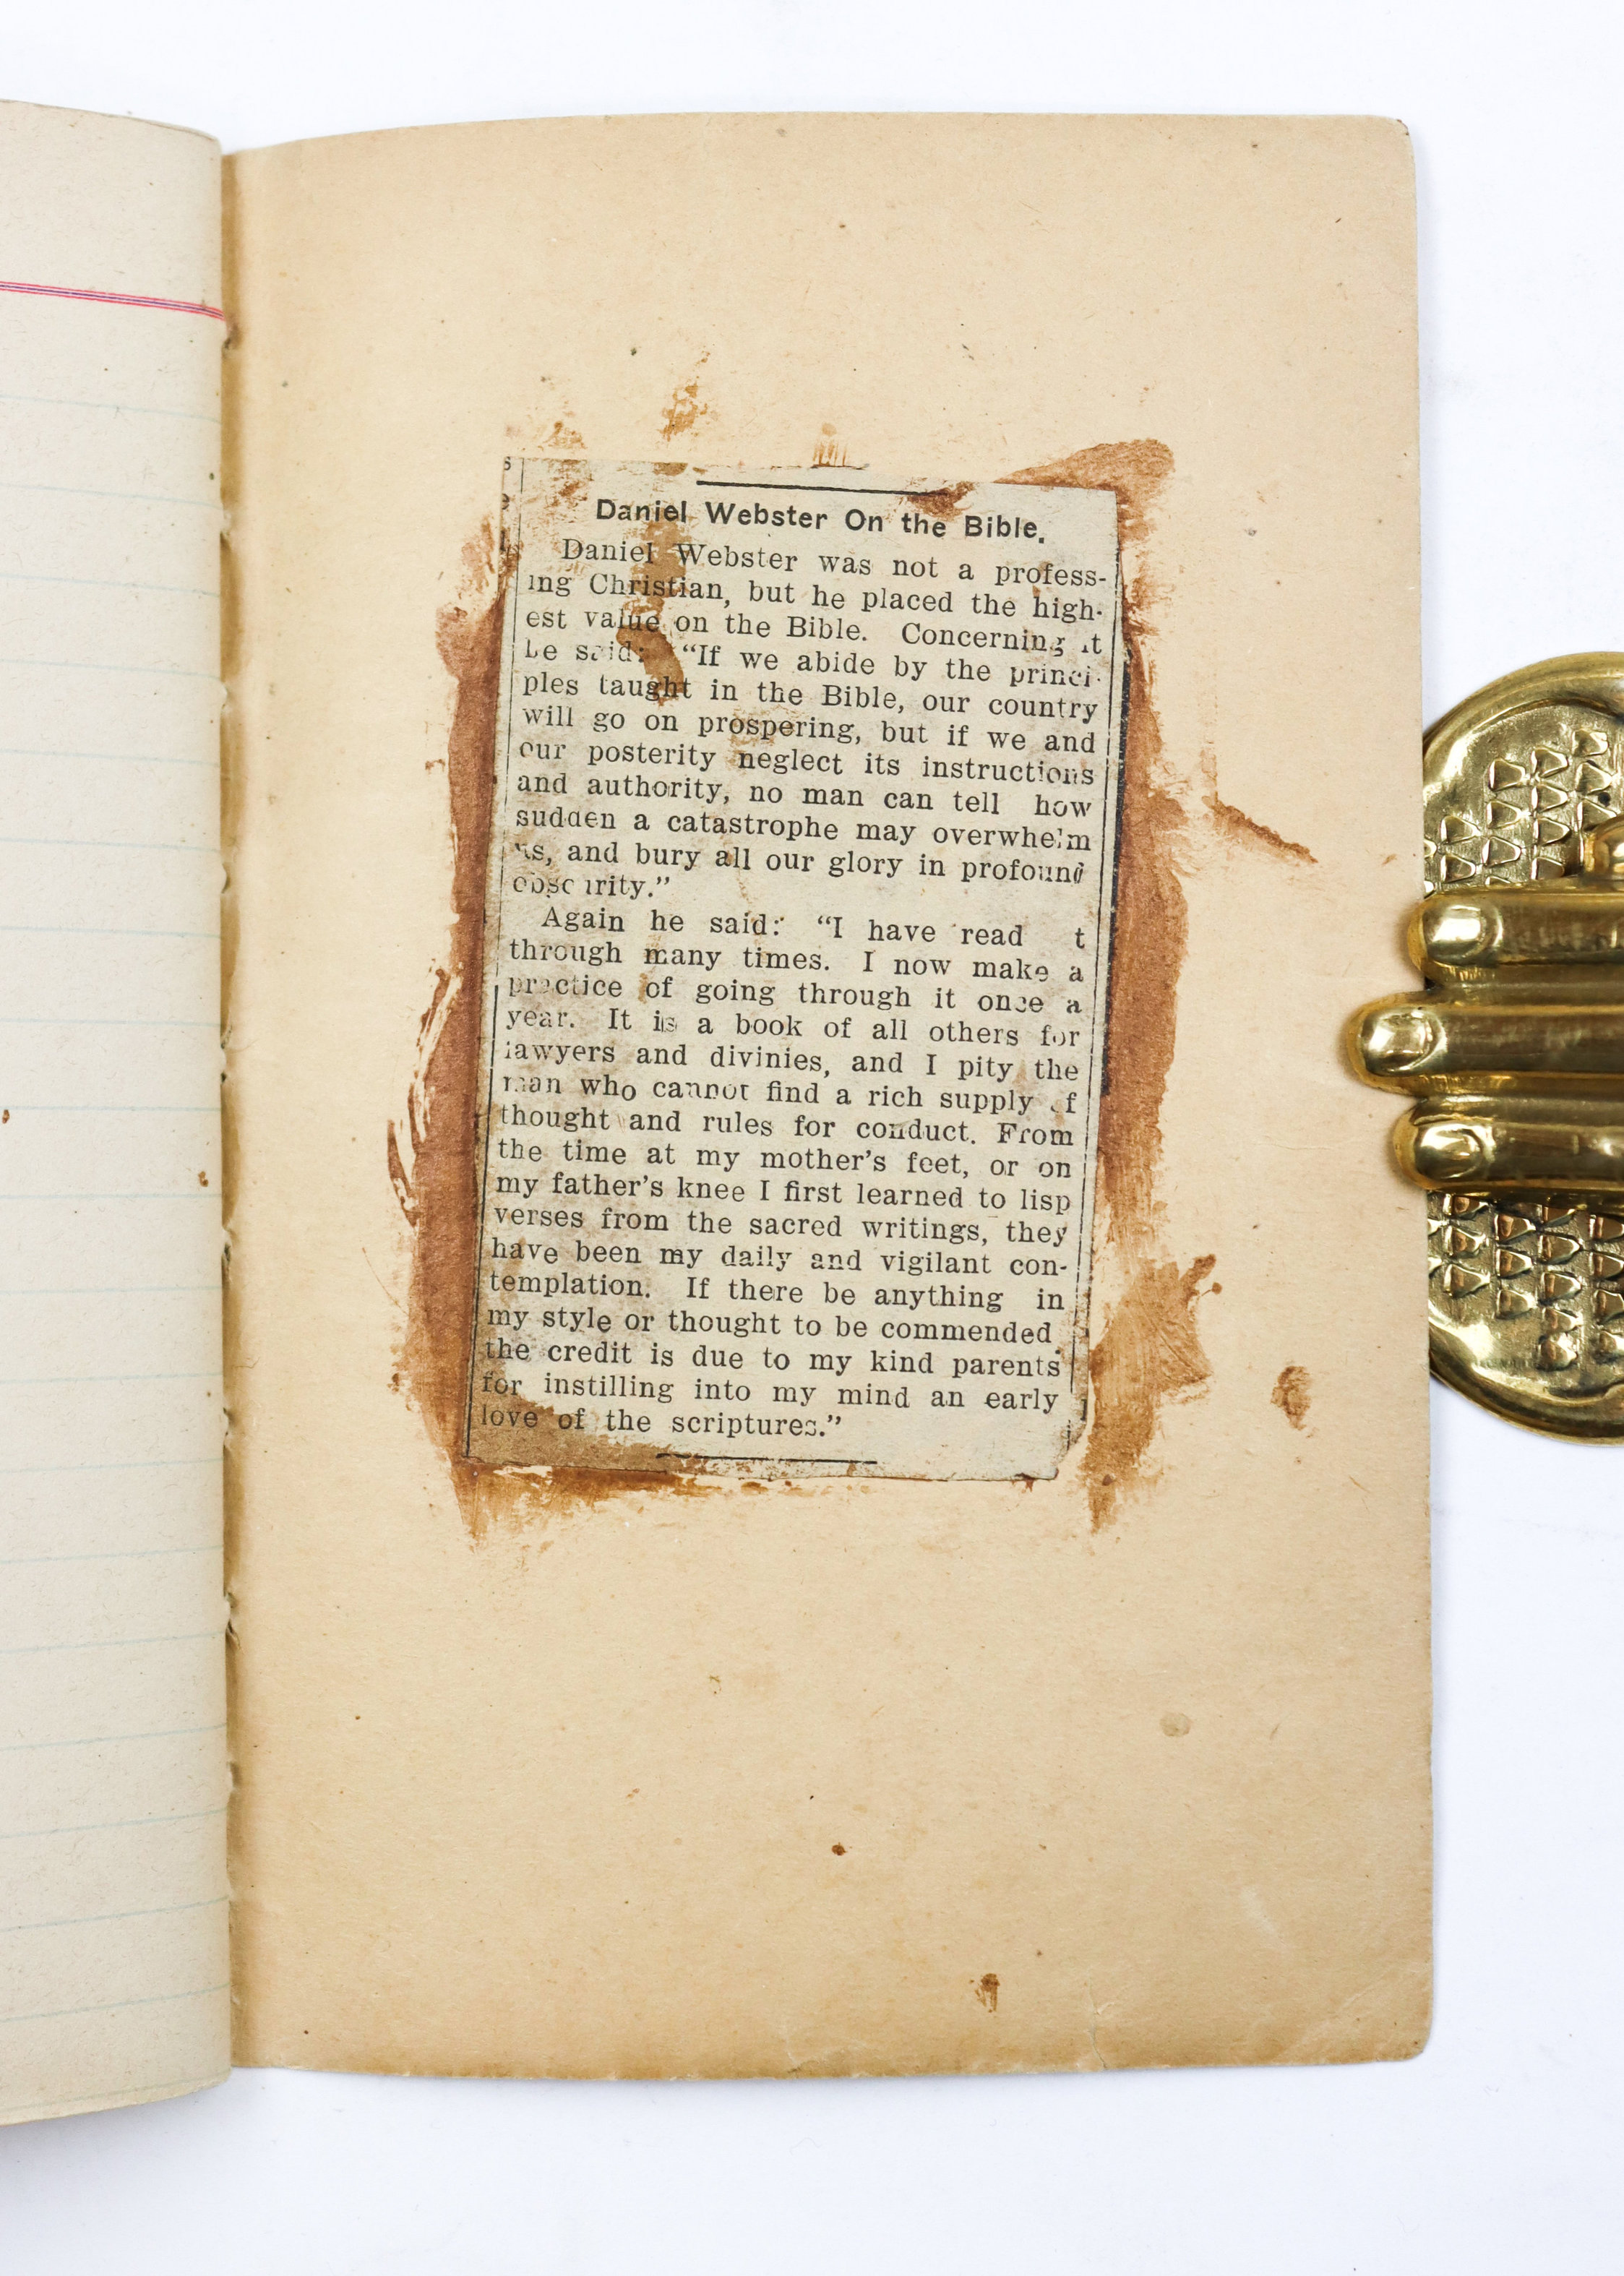 Daniel Webster On the Bible.
Daniel Webster was not a profess-
ing Christian, but he placed the high-
est value on the Bible. Concerning it
he said: “If we abide by the princi-
ples taught in the Bible, our country
will go on prospering, but if we and
our posterity neglect its instructions
and authority, no man can tell how
sudden a catastrophe may overwhelm
us, and bury all our glory in profound
obscurity.”
Again he said: “I have read t
through many times. I now make a
practice of going through it once a
year. It is a book of all others for
lawyers and divinies, and I pity the
man who cannot find a rich supply of
thought and rules for conduct. From
the time at my mother’s feet, or on
my father’s knee I first learned to lisp
verses from the sacred writings, they
have been my daily and vigilant con-
templation. If there be anything in
my style or thought to be commended
the credit is due to my kind parents
for instilling into my mind an early
love of the scriptures.”